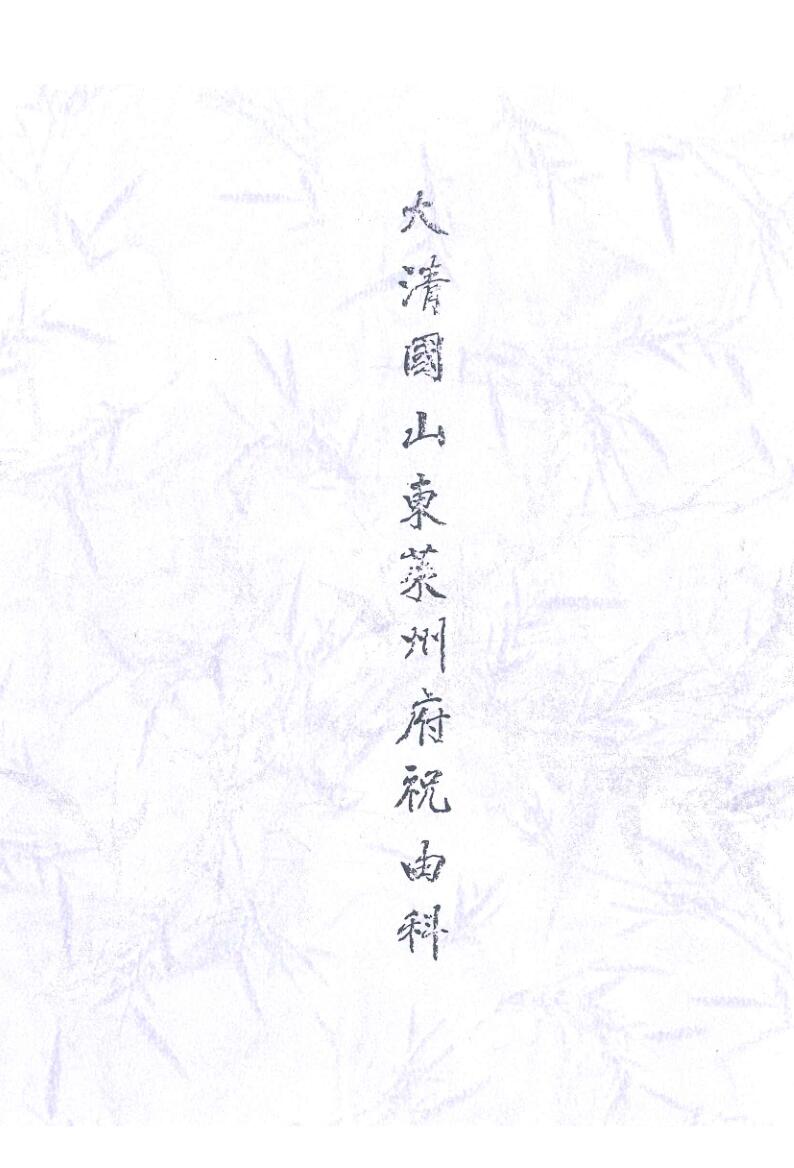 大清國山東莱州府祝由科